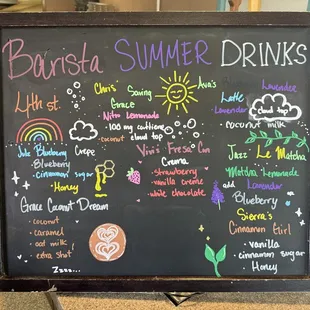 Barista SUMMER DRINKS
4th st.
Jule Blueberry
Crepe
· Blueberry
· Cinnamon sugar
· Honey
Grace Coconut Dream
· coconut
· caramel
· oat milk
· extra shot
Zzzz...
Chris'
Saving
Grace
Nitro Lemonade
· 100 mg caffeine
· coconut cloud top
Vivi's Fresa Con
Crema
· strawberry
· vanilla creme
· white chocolate
Ava's
Lavender
Latte
cloud top
· Lavender
coconut milk
Jazz' Le Matcha
Matcha Lemonade
add Lavender
Blueberry
Sierra's
Cinnamon Girl
· vanilla
· cinnamon sugar
· Honey